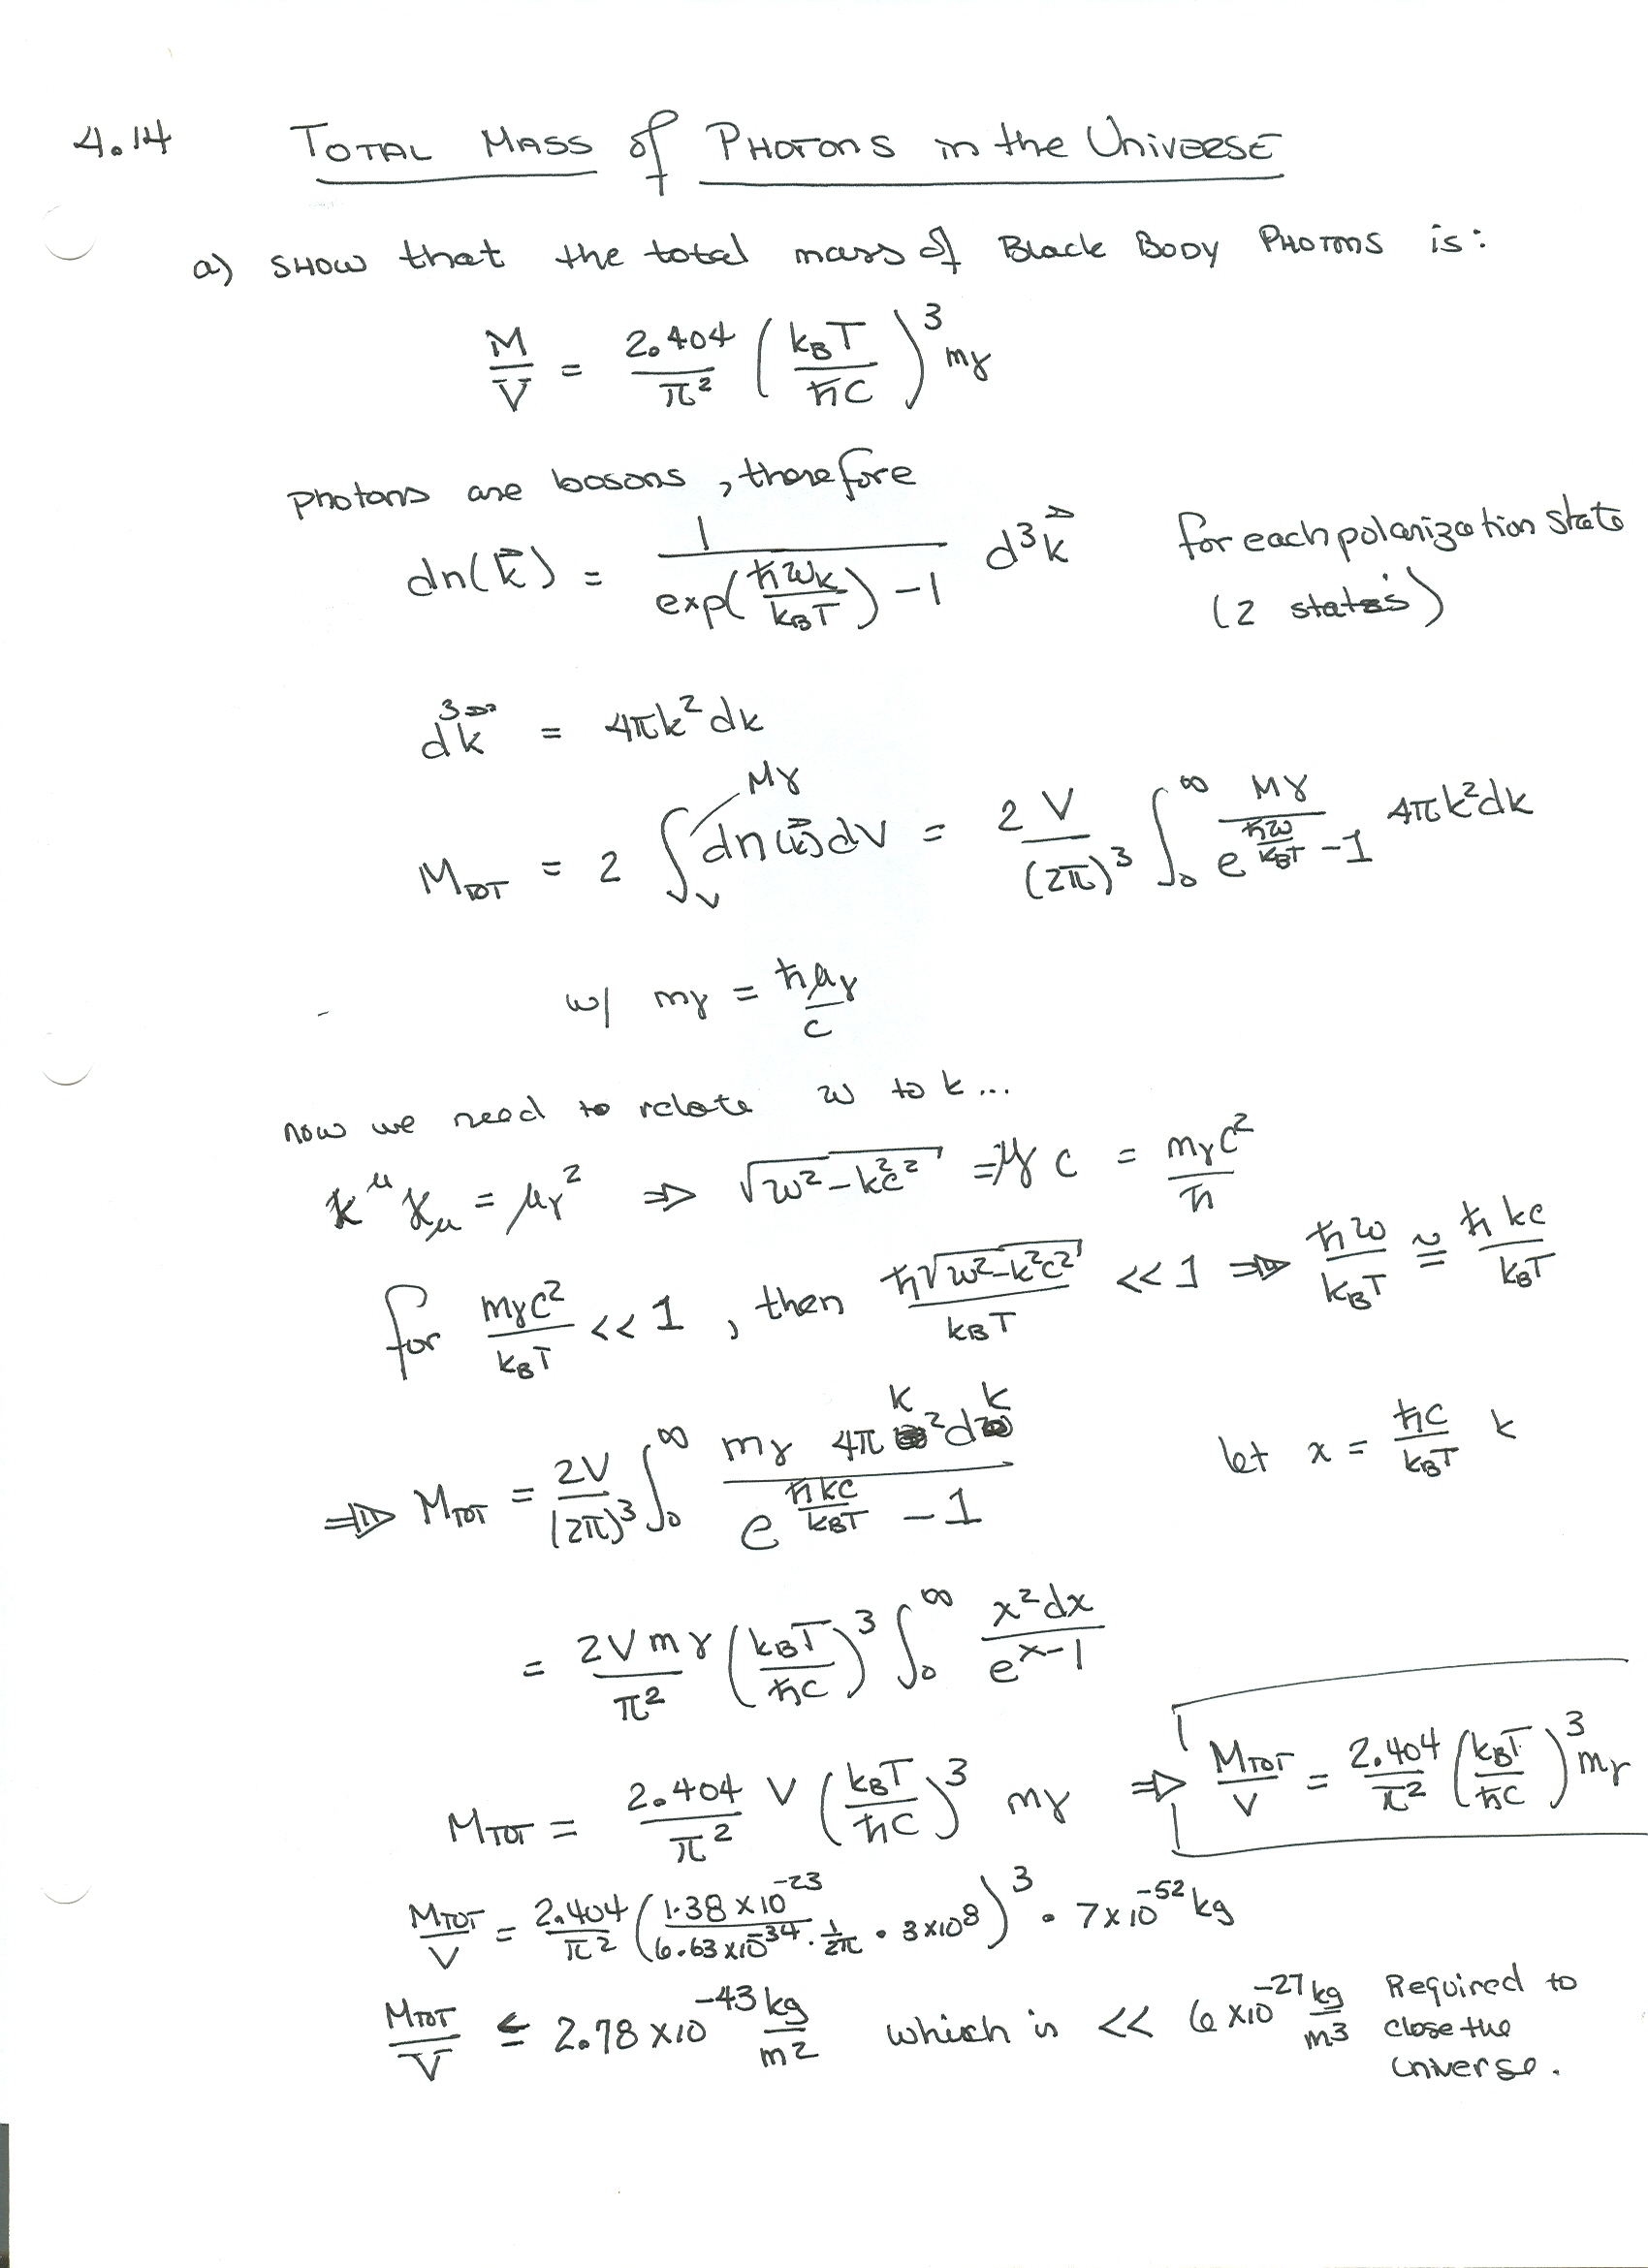 4.14 TOTAL MASS of PHOTONS in the UNIVERSE
a) SHOW that the total mass of BLACK BODY PHOTONS is:
M/V = 2.404/π² (k_B T/ħc)³ mγ
photons are bosons, therefore
dn(k⃗) = 1/(exp(ħω_k/k_B T) - 1) d³k⃗ for each polarization state
(2 states)
d³k⃗ = 4πk²dk
M_TOT = 2 ∫_V Mγ dn(k⃗)dV = 2V/(2π)³ ∫₀^∞ Mγ/(e^(ħω/k_B T) - 1) 4πk²dk
w/ mγ = ħμγ/c
now we need to relate ω to k...
k^μ k_μ = μγ² ⇒ √(ω²-k²c²) = μγ c = mγc²/ħ
for mγc²/k_B T << 1, then ħ√(ω²-k²c²)/k_B T << 1 ⇒ ħω/k_B T ≅ ħkc/k_B T
⇒ M_TOT = 2V/(2π)³ ∫₀^∞ mγ 4π k² dk/(e^(ħkc/k_B T) - 1) let x = ħc/k_B T k
= 2Vmγ/π² (k_B T/ħc)³ ∫₀^∞ x²dx/(e^x-1)
M_TOT = 2.404/π² V (k_B T/ħc)³ mγ ⇒ M_TOT/V = 2.404/π² (k_B T/ħc)³ mγ
M_TOT/V = 2.404/π² (1.38 x10^-23/(6.63 x10^-34 · 1/2π · 3x10^8))³ · 7x10^-52 kg
M_TOT/V ≤ 2.78 x10^-43 kg/m2 which is << 6 x10^-27 kg/m3 Required to
close the
universe.